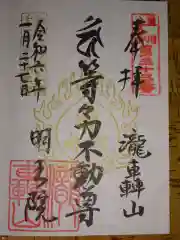 奉拝
瀧轟山
等々力不動尊
明王院
令和六年
一月二十七日